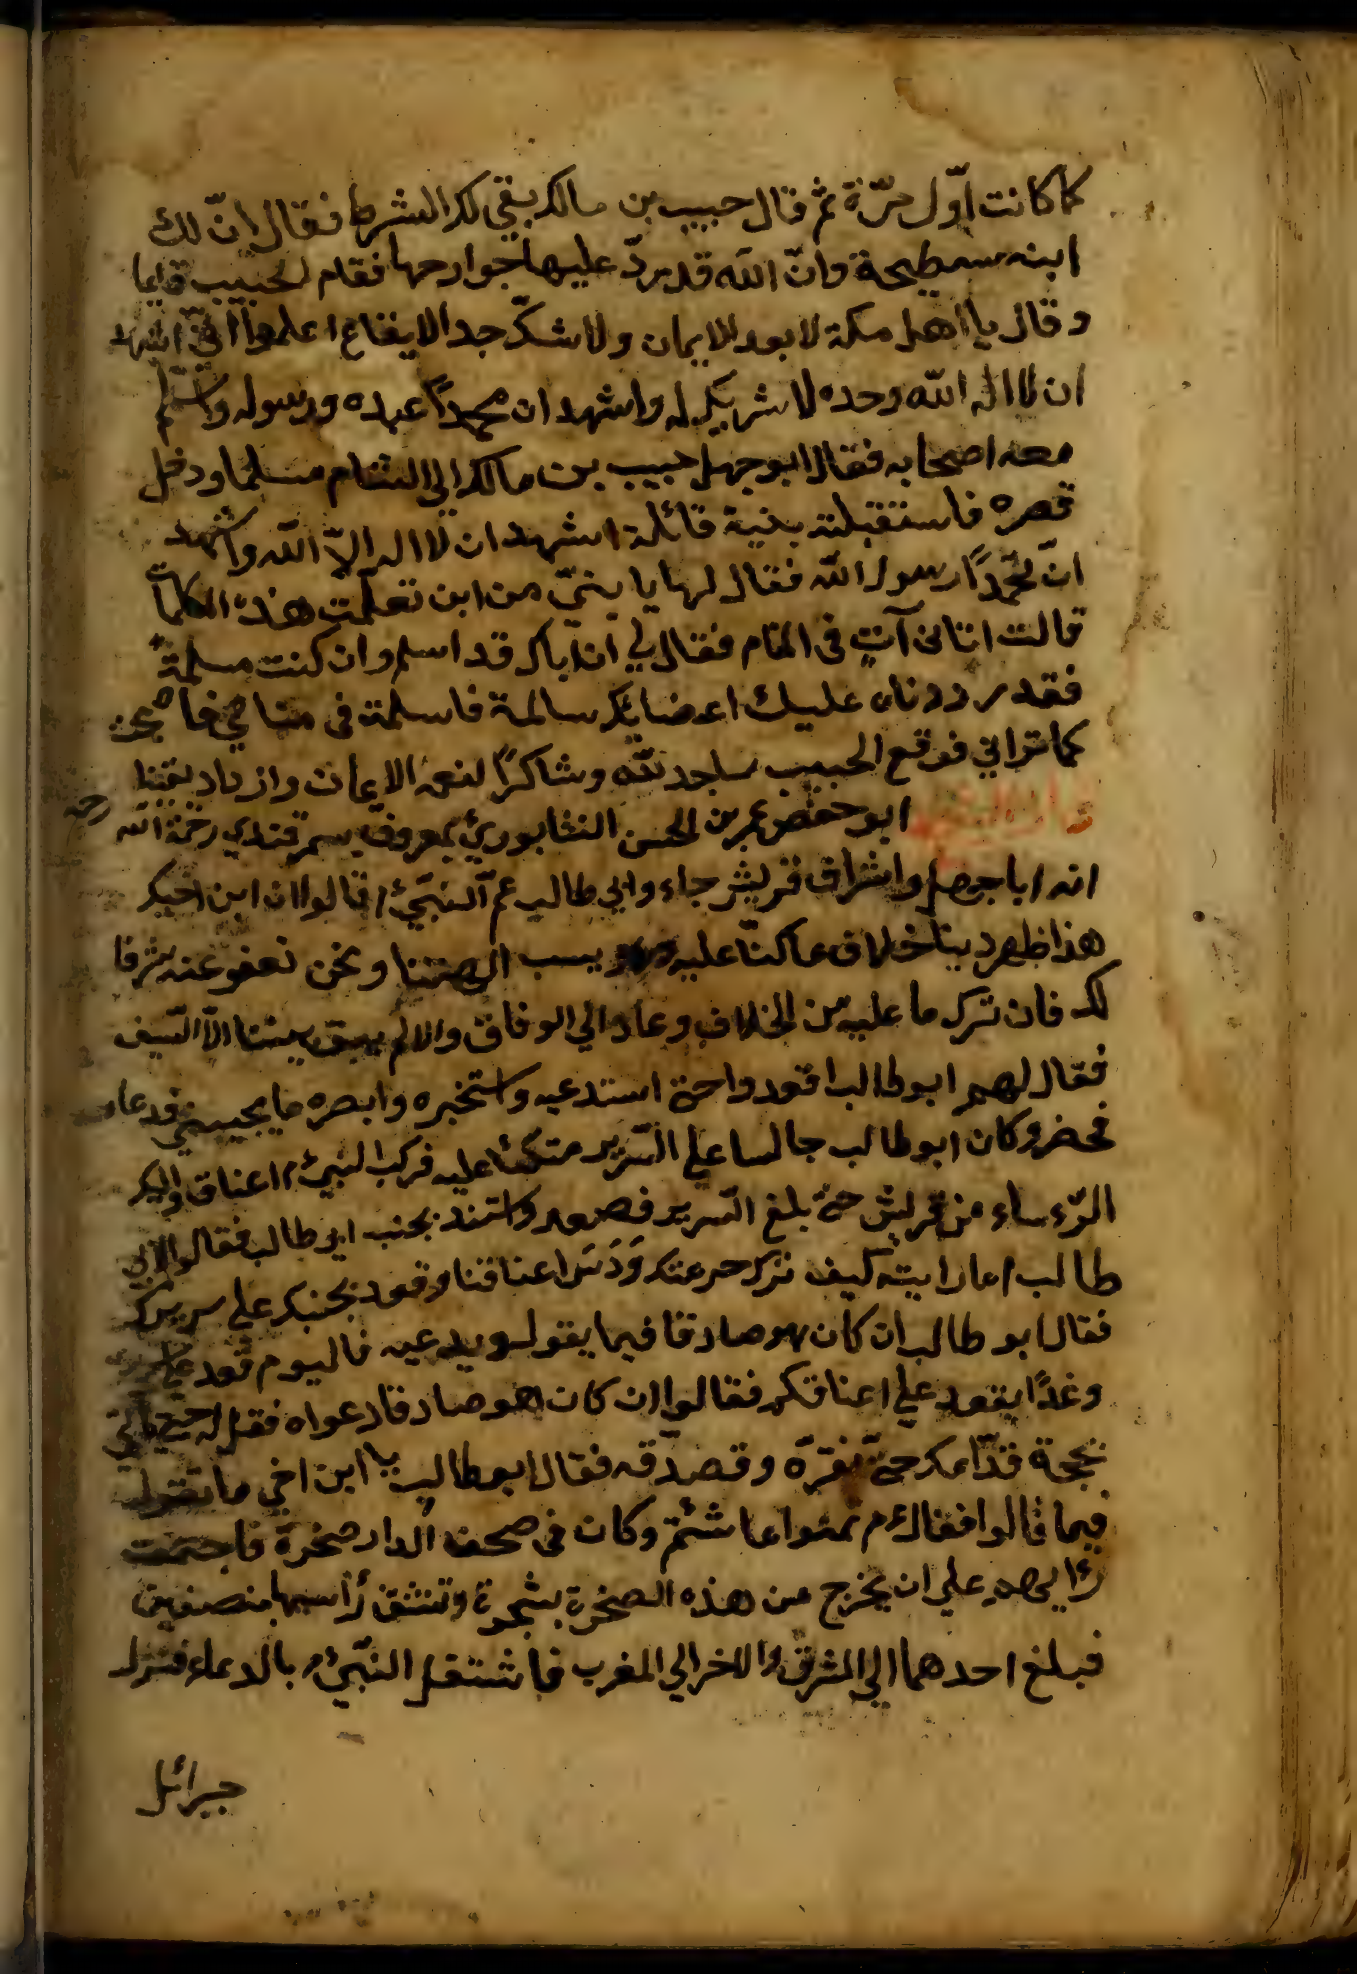 كما كانت اوّل مرّة ثم قال حبيب بن مالك بقي لك الشرط فقال انّ لك
ابنه سطيحة وانّ الله قد يردّ عليها جوارحها فقام الحبيب قايما
وقال يا اهل مكة لا بعد الايمان ولا شكّ جد الايقاع اعلموا انّي اشهد
ان لا اله الله وحده لا شريك له واشهد ان محمدًا عبده ورسوله واسلم
معه اصحابه فقال ابو جهل حبيب بن مالك الي الشام مسلما ودخل
قصره فاستقبلته بنية قائلة اشهد ان لا اله الاّ الله واشهد
انّ محمّدًا رسول الله فقال لها يا بنيّ من اين تعلّمت هذه الكلمات
قالت اتانى آتٍ فى المنام فقال لي ان اباك قد اسلم وان كنت مسلمةً
فقد رددناه عليك اعضايك سالمة فاسلمت فى منامي فاصبحت
كما تراني فوقع الحبيب ساجد لله وشاكرًا لنعمة الايمان وازداد يقينا
ابو حفص عمر بن الحسن النشابوري بمعروف بسمرقندي رحمة الله
انه ابا جهل واشراف قريش جاء وابي طالب عم النبّيّ م قالوا ان ابن اخيك
هذا ظهر دينا خلاف ما كنّا عليه ويسب الهتنا ونحن نعفو عنه شرفا
لك فان ترك ما عليه من الخلاف وعاد الي الوفاق والا لم يبق بيننا الاّ السّيف
فقال لهم ابو طالب اقعدوا حتى استدعيه واستخبره وابصره ما يجيبني فدعا
فحضر وكان ابو طالب جالسا علي السّرير متكئا عليه فركب النبيّ م اعناق
الرّءساء من قريش حتى بلغ السّرير فصعد واستند بجنب ابو طالب فقالوا لابي
طالب اما رايته كيف ترك حرمتك وَدَسَ اعناقنا وقعد بجنبك علي سريرك
فقال ابو طالب ان كان هو صادقا فيما يقول ويدعيه فاليوم قعد علي
وغدًا يقعد علي اعناقكم فقالوا ان كان هو صادقا دعواه فقل له حتى ياتي
بحجة قدّامك حتّى نقرّه وقصدّقه فقال ابو طالب يا ابن اخي ما تقول
فيما قالوا فقال م تمنوا ما شئتم وكان فى صحن الدار صخرة فاجتمعت
رايهم علي ان يخرج من هذه الصخرة بشجرة وتنشق رأسها بنصفين
فبلغ احدهما الي المشرق والاخر الي المغرب فاشتغل النبّيّ م بالدعاء فنزل
جبرائل